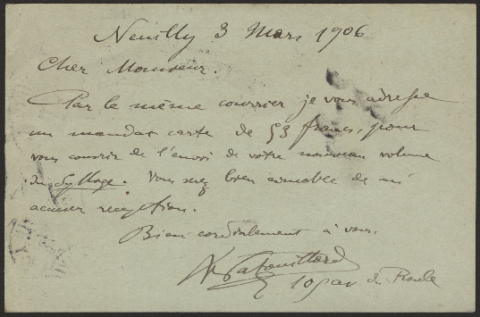 Neuilly 3 Mars 1906
Cher Monsieur.
Par le même courrier je vous adresse
un mandat carte de 53 francs, pour
vous couvrir de l'envoi de votre nouveau volume
du Sylloge. Vous serez bien aimable de m'
accuser réception.
Bien cordialement à vous.
N. Patouillard
105 av du Roule